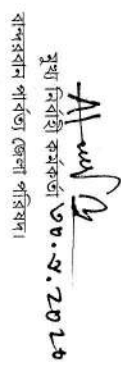 মুখ্য নির্বাহী কর্মকর্তা
বান্দরবান পার্বত্য জেলা পরিষদ।